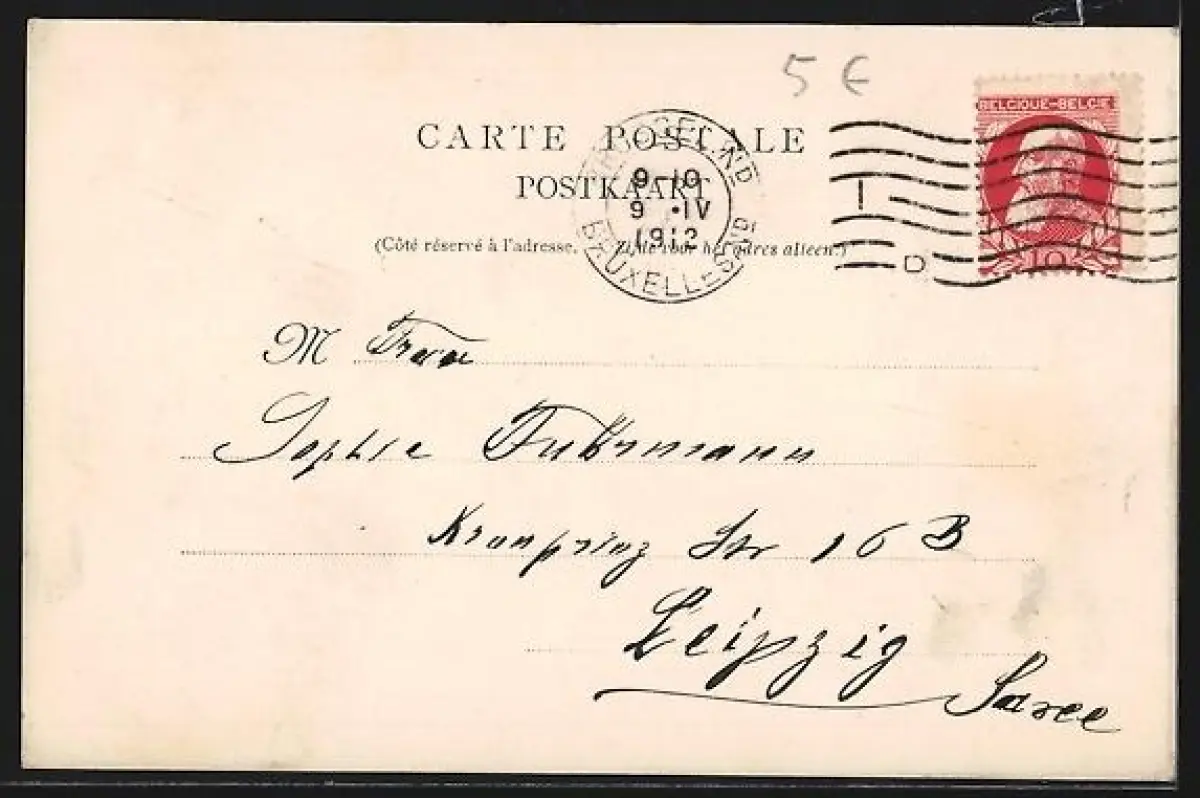 5 €
BELGIQUE-BELGIE
10
CARTE POSTALE
POSTKAART
(Côté réservé à l'adresse. Zijde voor het adres alleen.)
9-10
9 •IV
1912
BRUXELLES
1
D
M Frau
Sophie Fuhrmann
Kronprinz Str 16 B
Leipzig